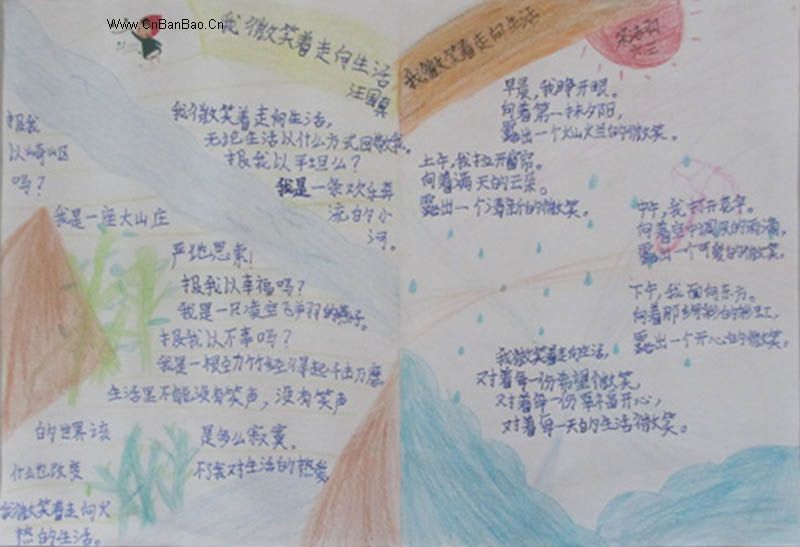 www.CnBanBao.Cn
我微笑着走向生活
汪国真
我微笑着走向生活,
无论生活以什么方式回敬我。
报我以平坦么?
我是一条欢乐奔
流的小
河。
报我
以崎岖
吗?
我是一座大山庄
严地思索!
报我以幸福吗?
我是一只凌空飞羽的燕子。
报我以不幸吗?
我是一根劲竹经得起千击万磨。
生活里不能没有笑声,没有笑声
的世界该 是多么寂寞。
什么也改变 不了我对生活的热爱,
我微笑着走向火
热的生活。
我微笑着走向生活
六三
早晨,我睁开眼。
向着第一抹夕阳,
露出一个火山火兰的微笑。
上午,我拉开窗帘。
向着满天的云朵。
露出一个清新的微笑。
中午,我打开花伞。
向着空中调皮的雨滴,
露出一个可爱的微笑。
下午,我面向东方。
向着那绚彩的彩虹,
露出一个开心的微笑。
我微笑着走向生活,
对着每一份希望微笑,
对着每一份幸福开心,
对着每一天的生活微笑。